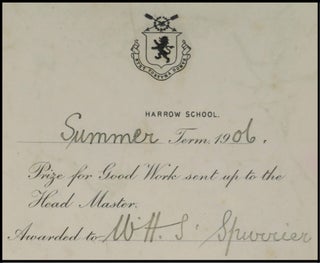 HARROW SCHOOL.
Summer Term 1906.
Prize for Good Work sent up to the
Head Master.
Awarded to W. H. S. Spurrier